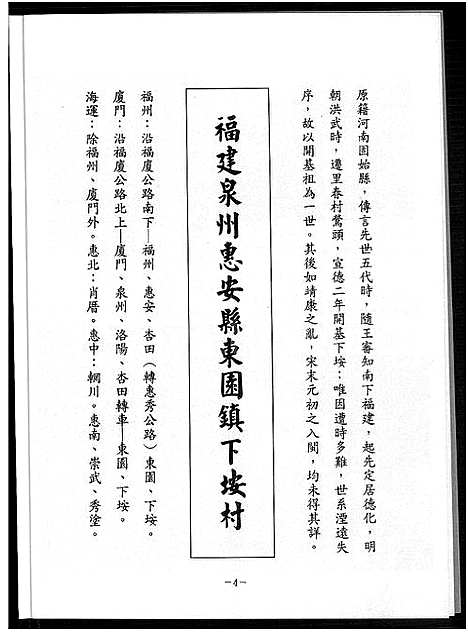 原籍河南固始縣，傳言先世五代時，隨王審知南下福建，起先定居德化，明
朝洪武時，遷里春村鶩頭，宣德二年開基下垵：唯因遭時多難，世系湮遠失
序，故以開基祖為一世。其後如靖康之亂，宋末元初之入閩，均未得其詳。
福建泉州惠安縣東園鎮下垵村
福州：沿福廈公路南下—福州、惠安、杏田（轉惠秀公路）東園、下垵。
廈門：沿福廈公路北上—廈門、泉州、洛陽、杏田轉車—東園、下垵。
海運：除福州、廈門外。惠北：肖厝。惠中：輞川。惠南、崇武、秀塗。
－4－